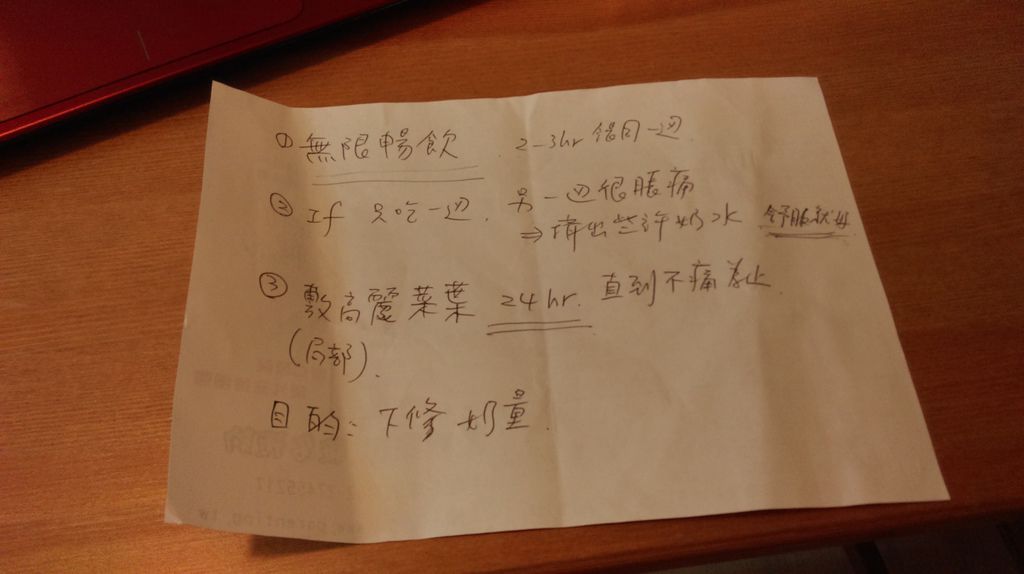 ① 無限暢飲 2-3hr 很同一邊.
② If 只吃一邊. 另一邊很脹痛
⇒ 擠出些許奶水 舒服就好
③ 敷高麗菜葉 24 hr. 直到不痛為止.
(局部).
目的: 下修奶量.